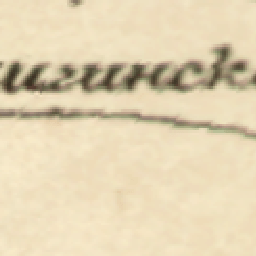 игинска